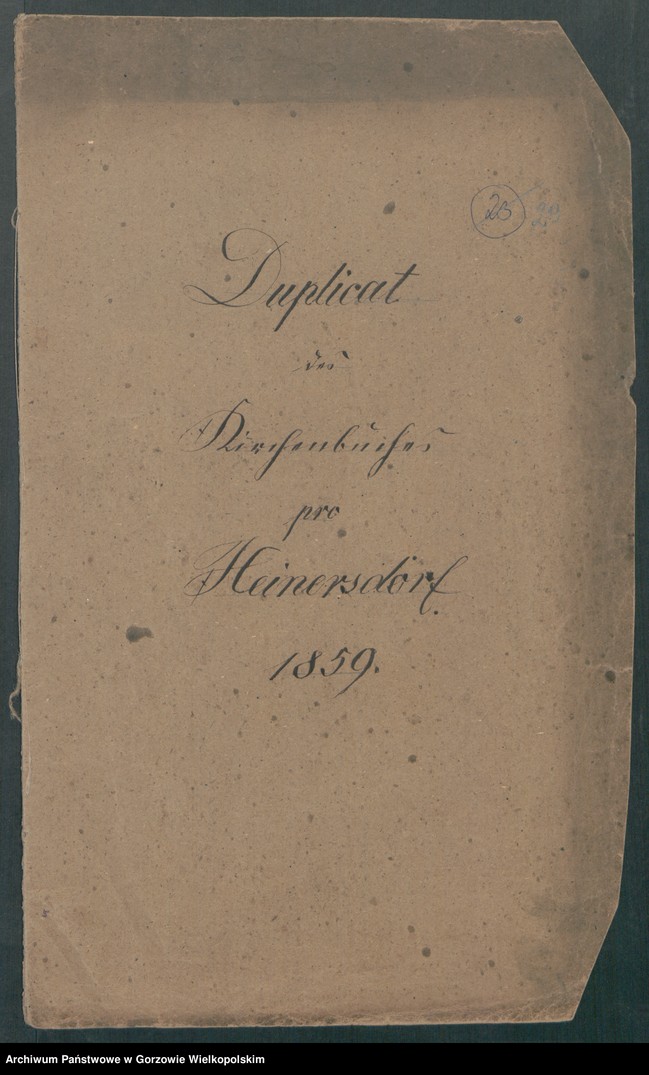 23
Duplicat
des
Kirchenbuches
pro
Heinersdorf.
1859.
Archiwum Państwowe w Gorzowie Wielkopolskim